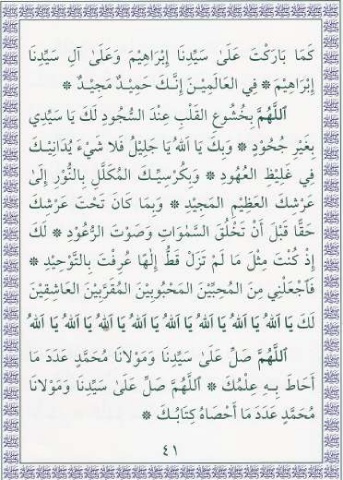 كَمَا بَارَكْتَ عَلَىٰ سَيِّدِنَا إِبْرَاهِيْمَ وَعَلَىٰ آلِ سَيِّدِنَا
إِبْرَاهِيْمَ * فِي العَالَمِيْنَ إِنَّكَ حَمِيْدٌ مَجِيْدٌ *
اَللَّهُمَّ بِخُشُوعِ القَلْبِ عِنْدَ السُّجُودِ لَكَ يَا سَيِّدِي
بِغَيْرِ جُحُوْدٍ * وَبِكَ يَا اَللهُ يَا جَلِيْلُ فَلَا شَيْءَ يُدَانِيْكَ
فِي غَلِيْظِ العُهُودِ * وَبِكُرْسِيِّكَ المُكَلَّلِ بِالنُّوْرِ إِلَىٰ
عَرْشِكَ العَظِيْمِ المَجِيْدِ * وَبِمَا كَانَ تَحْتَ عَرْشِكَ
حَقًّا قَبْلَ أَنْ تَخْلُقَ السَّمَوَاتِ وَصَوْتَ الرُّعُوْدِ * لَكَ
إِذْ كُنْتَ مِثْلَ مَا لَمْ تَزَلْ قَطُّ إِلَهًا عُرِفْتَ بِالتَّوْحِيْدِ *
فَاجْعَلْنِي مِنَ المُحِبِّيْنَ المَحْبُوبِيْنَ المُقَرَّبِيْنَ العَاشِقِيْنَ
لَكَ يَا اَللهُ يَا اَللهُ يَا اَللهُ يَا اَللهُ يَا اَللهُ يَا اَللهُ يَا اَللهُ
اَللَّهُمَّ صَلِّ عَلَىٰ سَيِّدِنَا وَمَوْلَانَا مُحَمَّدٍ عَدَدَ مَا
أَحَاطَ بِهِ عِلْمُكَ * اَللَّهُمَّ صَلِّ عَلَىٰ سَيِّدِنَا وَمَوْلَانَا
مُحَمَّدٍ عَدَدَ مَا أَحْصَاهُ كِتَابُكَ *
٤١